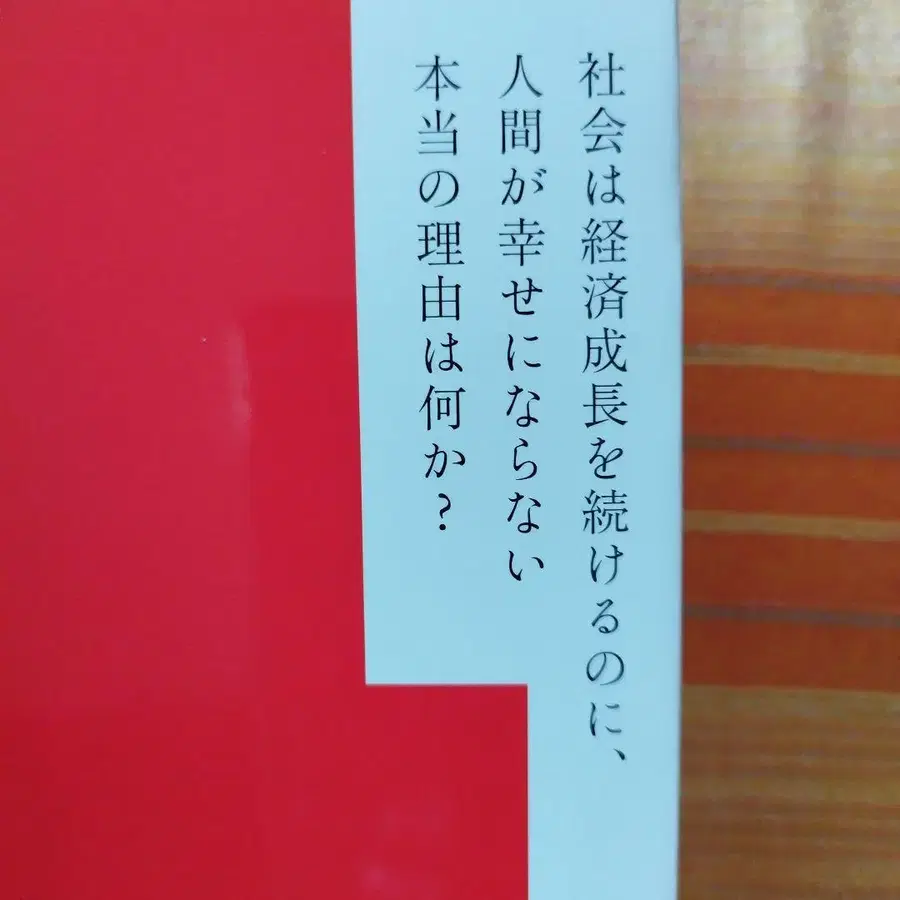 社会は経済成長を続けるのに、
人間が幸せにならない
本当の理由は何か？